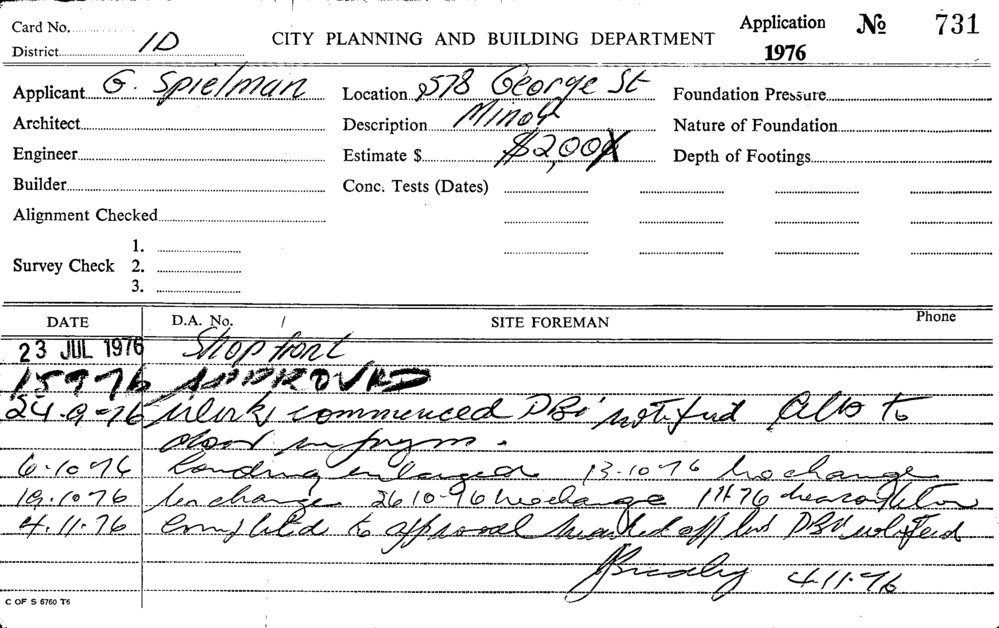 Card No.
District 1D
CITY PLANNING AND BUILDING DEPARTMENT
Application No 731
1976
Applicant G. Spielman
Location 578 George St
Foundation Pressure
Architect
Description Minor
Nature of Foundation
Engineer
Estimate $ $2,000
Depth of Footings
Builder
Conc. Tests (Dates)
Alignment Checked
Survey Check 1.
2.
3.
DATE D.A. No. / SITE FOREMAN Phone
23 JUL 1976 Shop front
15 9 76 APPROVED
24-9-76 Work commenced DBI notified to
door
6-10-76 Landing enlarged 13-10-76 no change
19-10-76 no change 26 10-76 no change 1 11 76
4.11.76 Completed to approval marked off DBI notified
4.11.76
C OF S 6760 T6